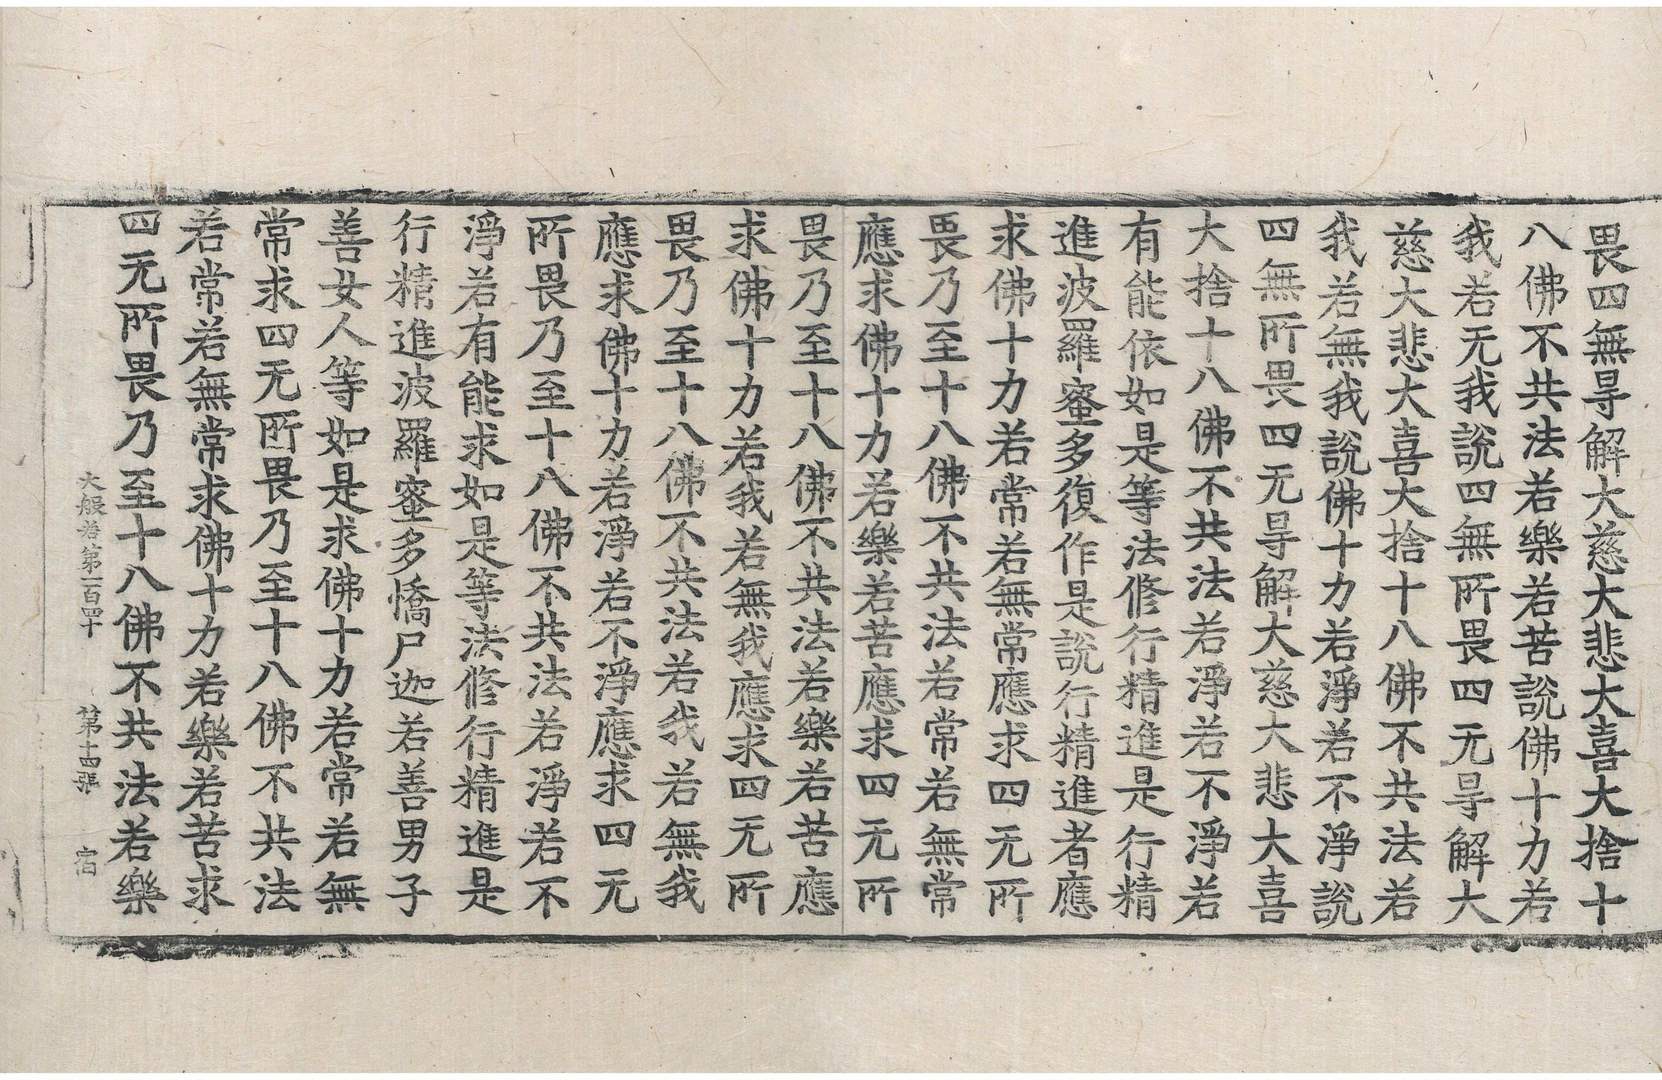 畏四無㝵解大慈大悲大喜大捨十
八佛不共法若樂若苦說佛十力若
我若无我說四無所畏四无㝵解大
慈大悲大喜大捨十八佛不共法若
我若無我說佛十力若淨若不淨說
四無所畏四无㝵解大慈大悲大喜
大捨十八佛不共法若淨若不淨若
有能依如是等法修行精進是行精
進波羅蜜多復作是說行精進者應
求佛十力若常若無常應求四无所
畏乃至十八佛不共法若常若無常
應求佛十力若樂若苦應求四无所
畏乃至十八佛不共法若樂若苦應
求佛十力若我若無我應求四无所
畏乃至十八佛不共法若我若無我
應求佛十力若淨若不淨應求四无
所畏乃至十八佛不共法若淨若不
淨若有能求如是等法修行精進是
行精進波羅蜜多憍尸迦若善男子
善女人等如是求佛十力若常若無
常求四无所畏乃至十八佛不共法
若常若無常求佛十力若樂若苦求
四无所畏乃至十八佛不共法若樂
大般若第一百四十 第十四張 宿